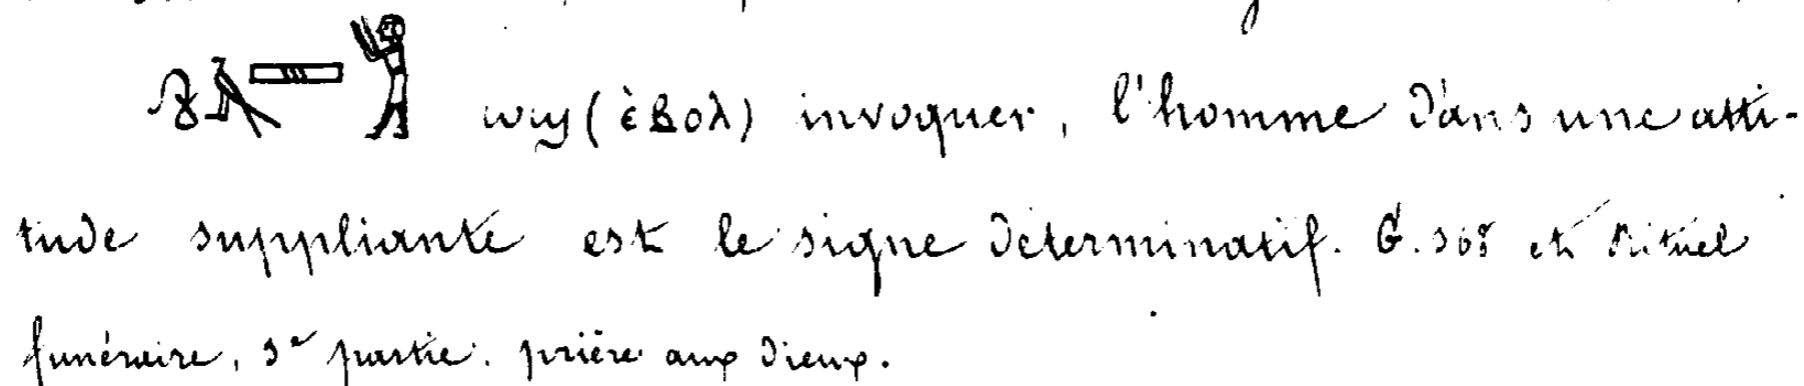 𓍯𓄿𓈙𓀢 ⲱϣ (ⲉ̀ⲃⲟⲗ) invoquer, l'homme dans une atti-
tude suppliante est le signe déterminatif. G. 368 et Rituel
funéraire, 3e partie. prière aux dieux.